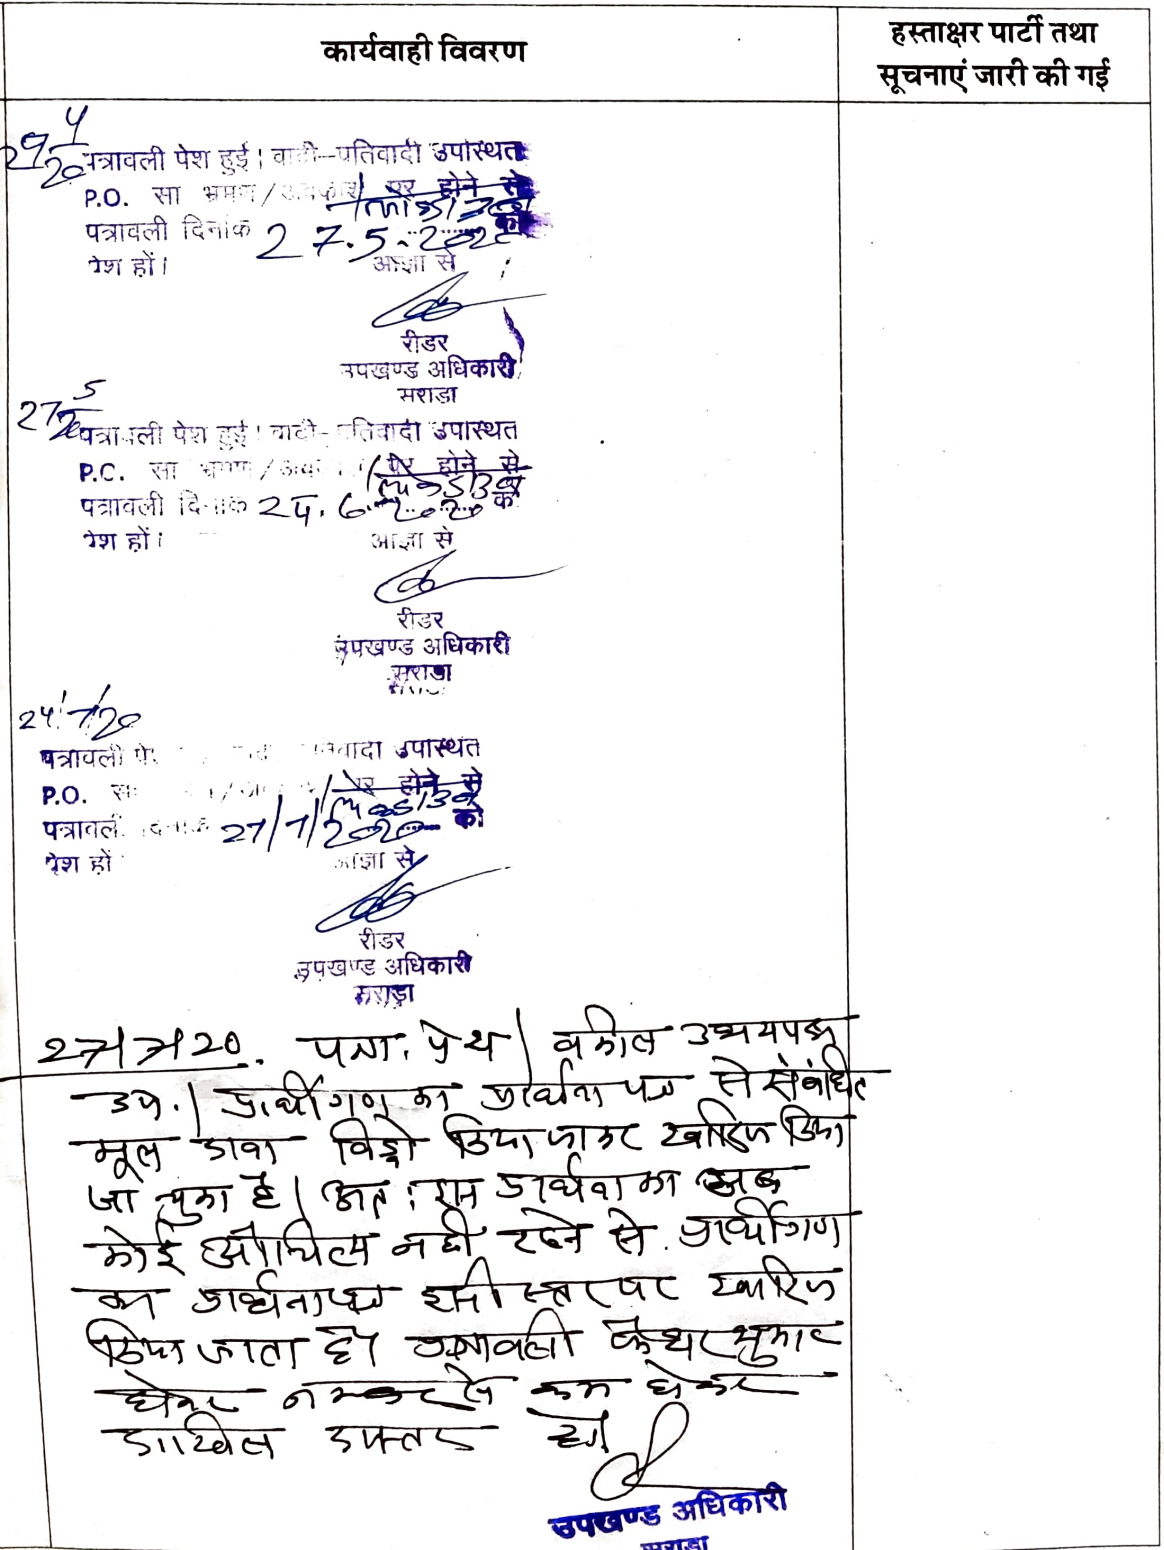 कार्यवाही विवरण
हस्ताक्षर पार्टी तथा
सूचनाएं जारी की गई
29/4/20
पत्रावली पेश हुई। वादी-प्रतिवादी उपस्थित
P.O. सा भ्रमण/अवकाश पर होने से
पत्रावली दिनांक 27.5.2020 को
पेश हों।
आज्ञा से
रीडर
उपखण्ड अधिकारी
सराडा
27/5/20
पत्रावली पेश हुई। वादी-प्रतिवादी उपस्थित
P.O. सा भ्रमण/अवकाश पर होने से
पत्रावली दिनांक 24.6.2020 को
पेश हों।
आज्ञा से
रीडर
उपखण्ड अधिकारी
सराडा
24/7/20
पत्रावली उपस्थित
P.O. सा पर होने से
पत्रावली दिनांक 27/7/2020 को
पेश हों
आज्ञा से
रीडर
उपखण्ड अधिकारी
सराडा
27/7/20. पत्रा. पेश। वकील उभयपक्ष
उप.। प्रार्थीगण का प्रार्थना पत्र से संबंधित
मूल दावा विड्रो किया जाकर खारिज किया
जा चुका है। अतः इस प्रार्थना का अब
कोई औचित्य नही रहने से प्रार्थीगण
का प्रार्थनापत्र इसी स्तर पर खारिज
किया जाता है। पत्रावली फैसल शुमार
होकर नम्बर से कम होकर
दाखिल दफ्तर हो।
उपखण्ड अधिकारी
सराडा